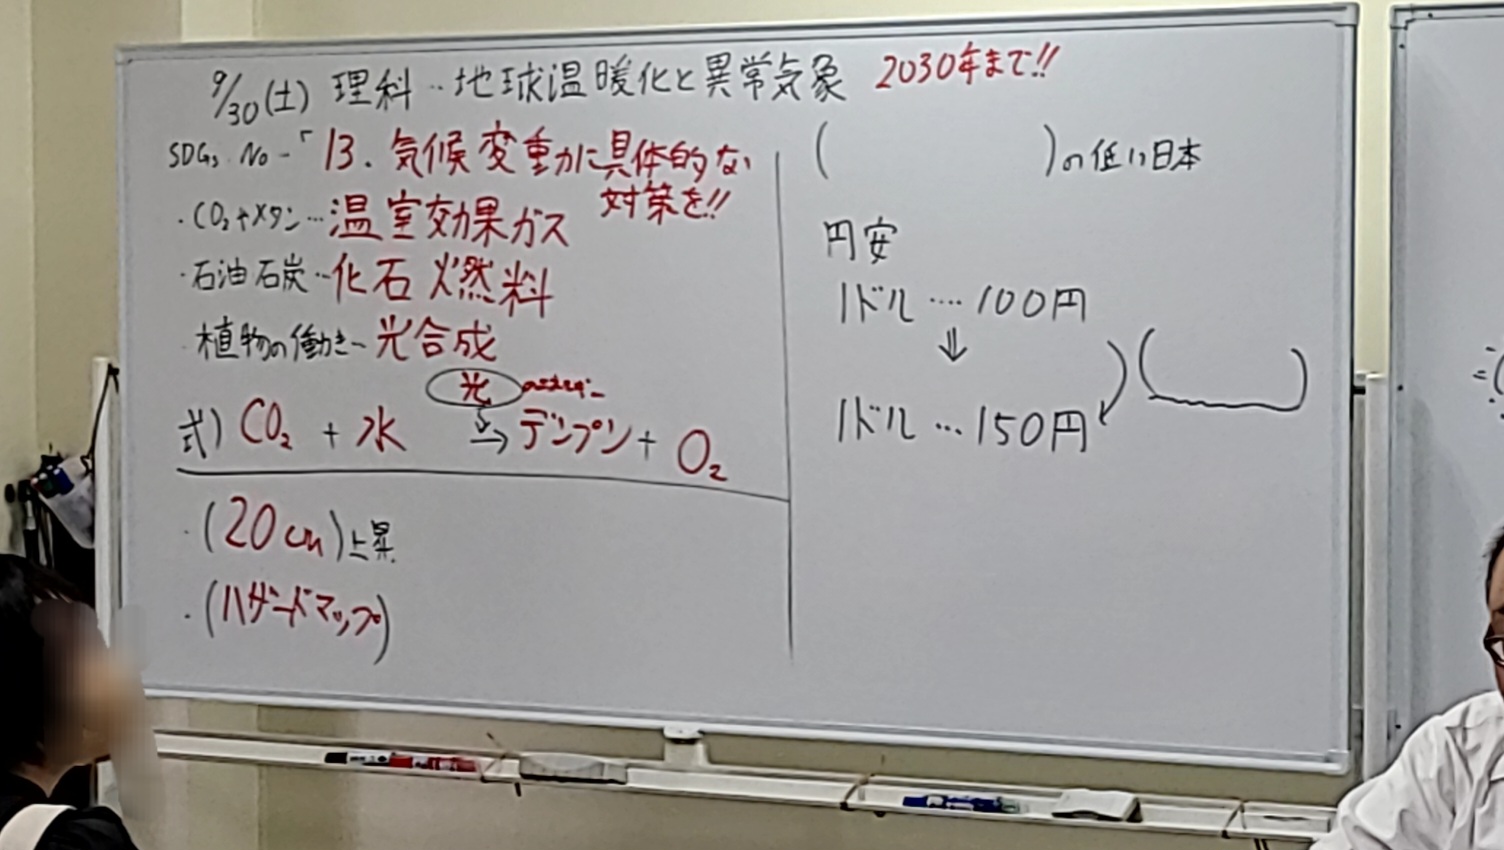 9/30(土) 理科…地球温暖化と異常気象 2030年まで!!
SDGs No-「13. 気候変動に具体的な
対策を!!
・CO₂+メタン…温室効果ガス
・石油石炭…化石燃料
・植物の働き~光合成
光
式) CO₂ + 水 → デンプン + O₂
・(20cm)上昇
・(ハザードマップ)
( )の低い日本
円安
1ドル…100円
⇓
1ドル…150円 ( )